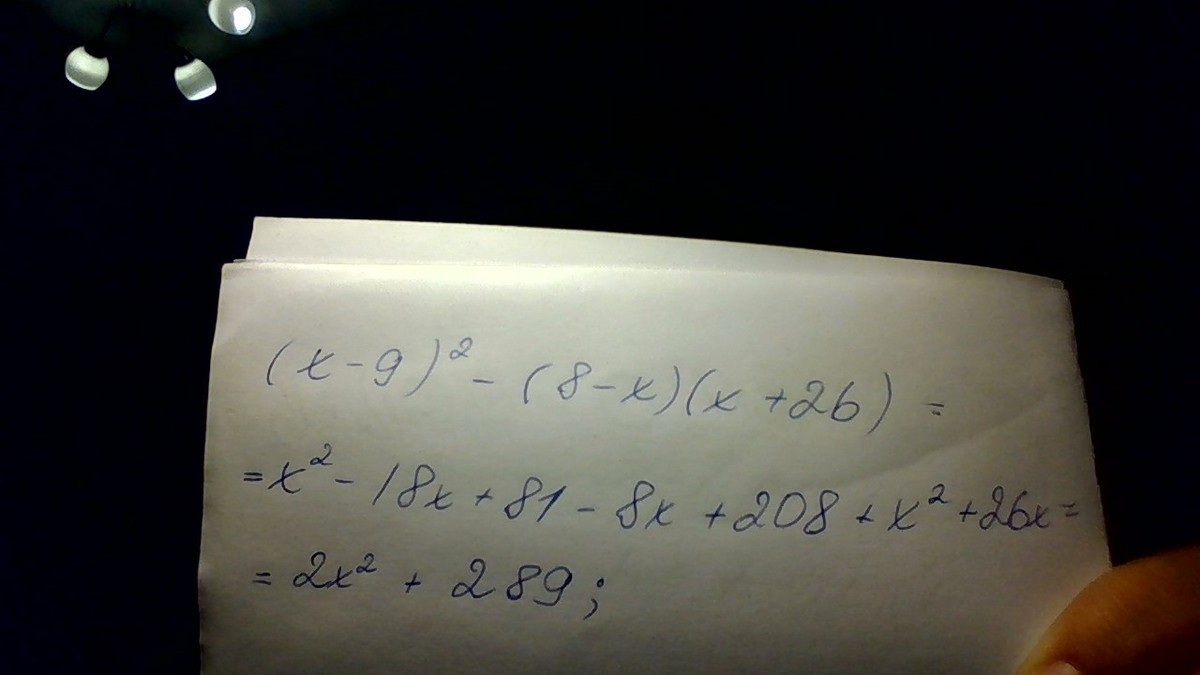 (x-9)² - (8-x)(x+26) =
=x² - 18x + 81 - 8x + 208 + x² + 26x =
= 2x² + 289;